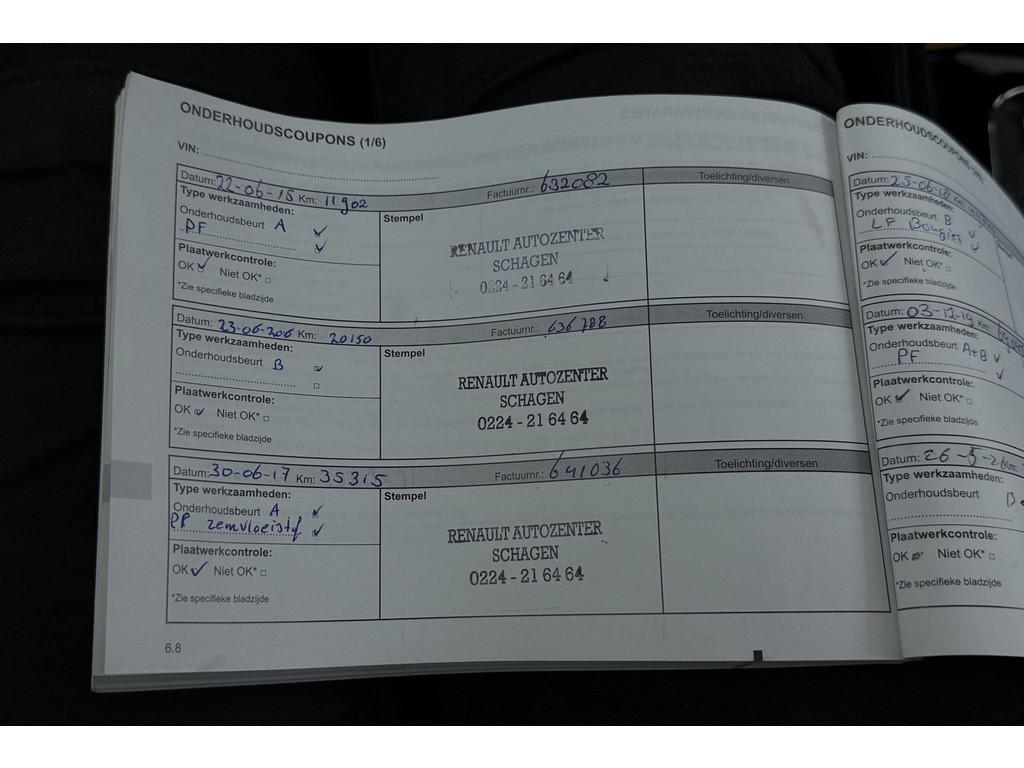 ONDERHOUDSCOUPONS (1/6)
VIN:
Datum: 22-06-15 Km: 11902 Factuurnr.: 632082 Toelichting/diversen
Type werkzaamheden:
Onderhoudsbeurt A
PF
Stempel
RENAULT AUTOZENTER
SCHAGEN
0224-21 64 64
Plaatwerkcontrole:
OK Niet OK*
*Zie specifieke bladzijde
Datum: 23-06-206 Km: 20150 Factuurnr.: 636788 Toelichting/diversen
Type werkzaamheden:
Onderhoudsbeurt B
Stempel
RENAULT AUTOZENTER
SCHAGEN
0224-21 64 64
Plaatwerkcontrole:
OK Niet OK*
*Zie specifieke bladzijde
Datum: 30-06-17 Km: 35315 Factuurnr.: 641036 Toelichting/diversen
Type werkzaamheden:
Onderhoudsbeurt A
PF remvloeistof
Stempel
RENAULT AUTOZENTER
SCHAGEN
0224-21 64 64
Plaatwerkcontrole:
OK Niet OK*
*Zie specifieke bladzijde
6.8
ONDERHOUDSCOUPONS
VIN:
Datum: 25-06-18 Km:
Type werkzaamheden:
Onderhoudsbeurt B
LF Bougies
Plaatwerkcontrole:
OK Niet OK*
*Zie specifieke bladzijde
Datum: 03-12-19 Km:
Type werkzaamheden:
Onderhoudsbeurt A+B
PF
Plaatwerkcontrole:
OK Niet OK*
*Zie specifieke bladzijde
Datum: 26-5-2 Km:
Type werkzaamheden:
Onderhoudsbeurt B
Plaatwerkcontrole:
OK Niet OK*
*Zie specifieke bladzijde